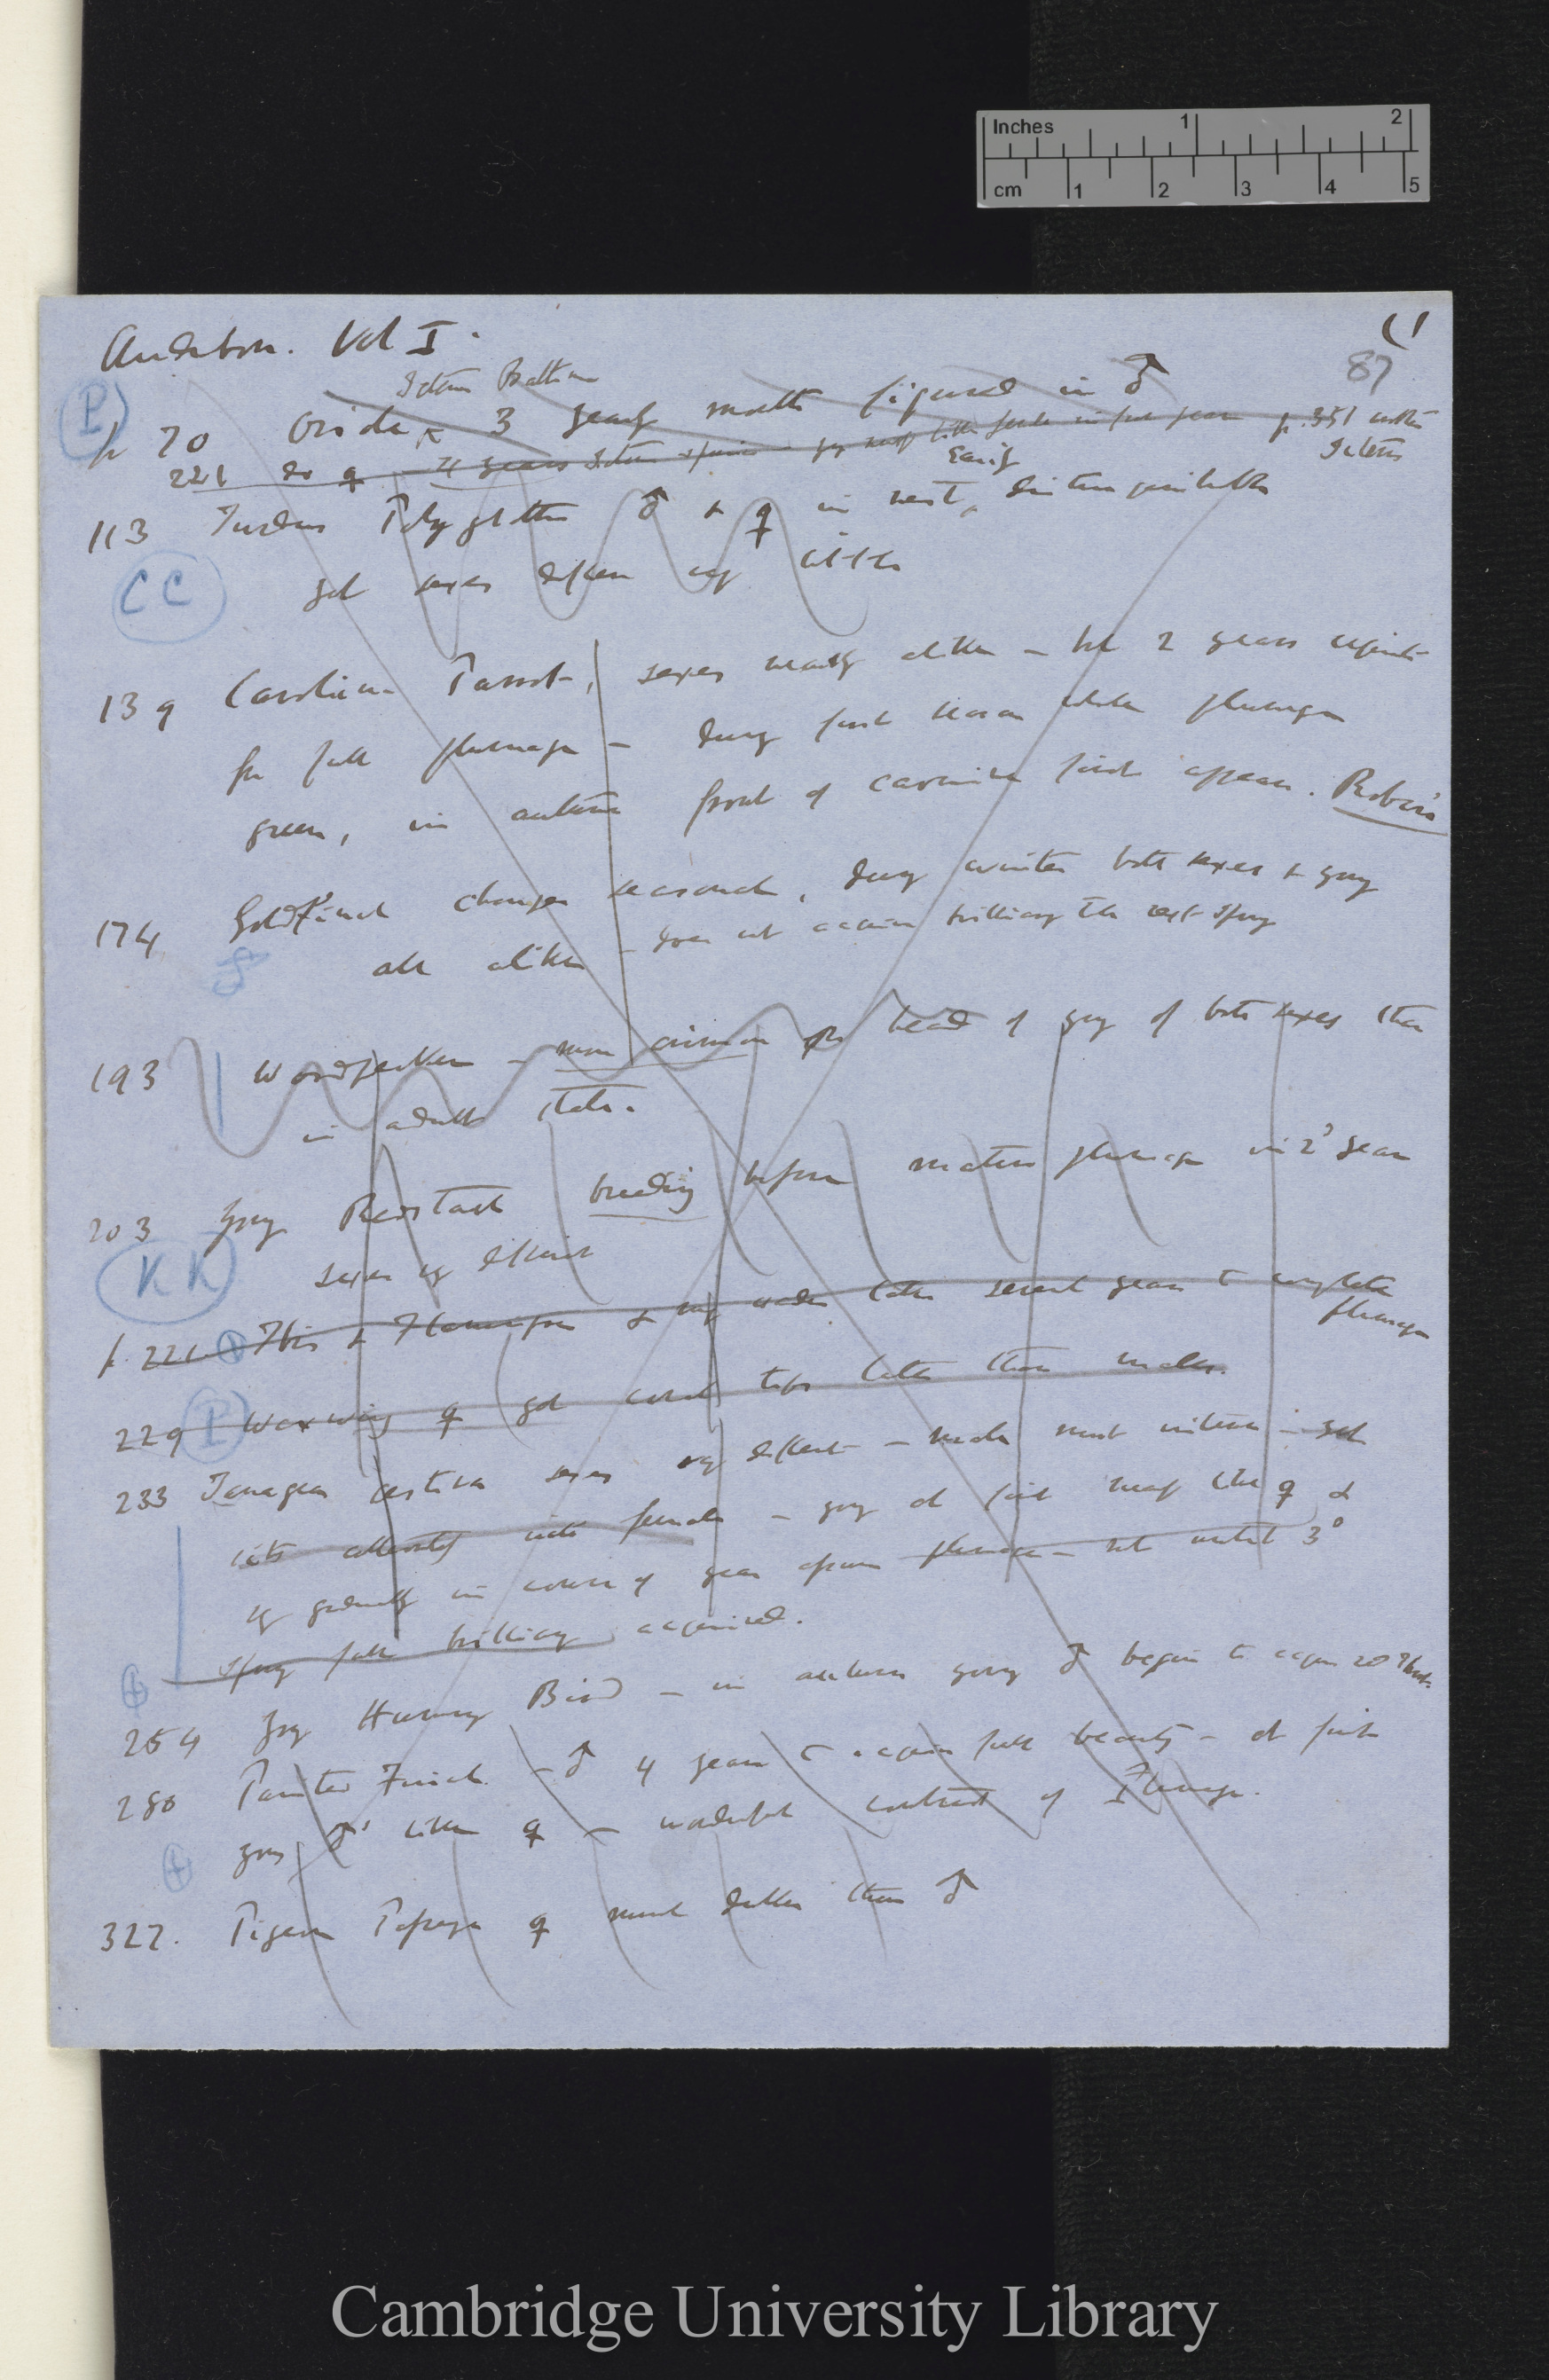 Inches 1 2
cm 1 2 3 4 5
Audubon. Vol I.
(1
87
P
p 70 Oriole 3 yearly moults figured in ♂
221 do ♀ 4 years p. 351 another
Icterus
113 Turdus Polyglottus ♂ & ♀ in nest, easily distinguishable
CC
yet sexes differ very little
139 Carolina Parrot, sexes nearly alike — but 2 years requisite
for full plumage — during first season whole plumage
green, in autumn front of carmine first appears. Robin's
174 Goldfinch changes seasonal, during winter both sexes & young
all alike — does not acquire brilliancy till next spring
193 Woodpecker — more crimson on head of young of both sexes than
in adult state.
203 Young Redstart breeding before mature plumage in 2d year
KK
sexes very different
p. 221 Ibis & Flamingo take several years to complete
plumage
229 P Waxwing ♀ get coral tips later than males.
233 Tanagra aestiva sexes very different — male must
female — young at first like ♀ &
very gradually in course of year plumage — not until 3d
spring full brilliancy acquired.
254 Young Humming Bird — in autumn young ♂ begin to acquire red Throat.
280 Painted Finch — ♂ 4 years to acquire full beauty — at first
young ♂ like ♀ — wonderful contrast of Plumage.
322. Pigeon ♀ much duller than ♂
Cambridge University Library